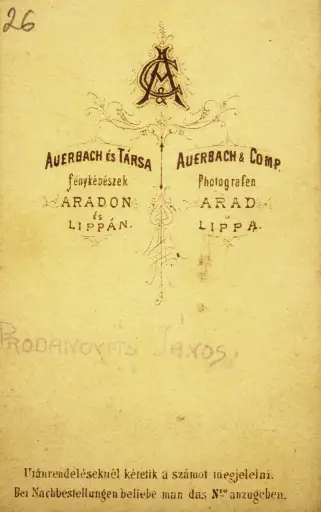 26
AC&
AUERBACH ÉS TÁRSA
fényképészek
ARADON
és
LIPPÁN.
AUERBACH & COMP.
Photografen
ARAD
LIPPA.
PRODANOVITS JÁNOS.
Utánrendeléseknél kéretik a számot megjelelni.
Bei Nachbestellungen beliebe man das Nro anzugeben.